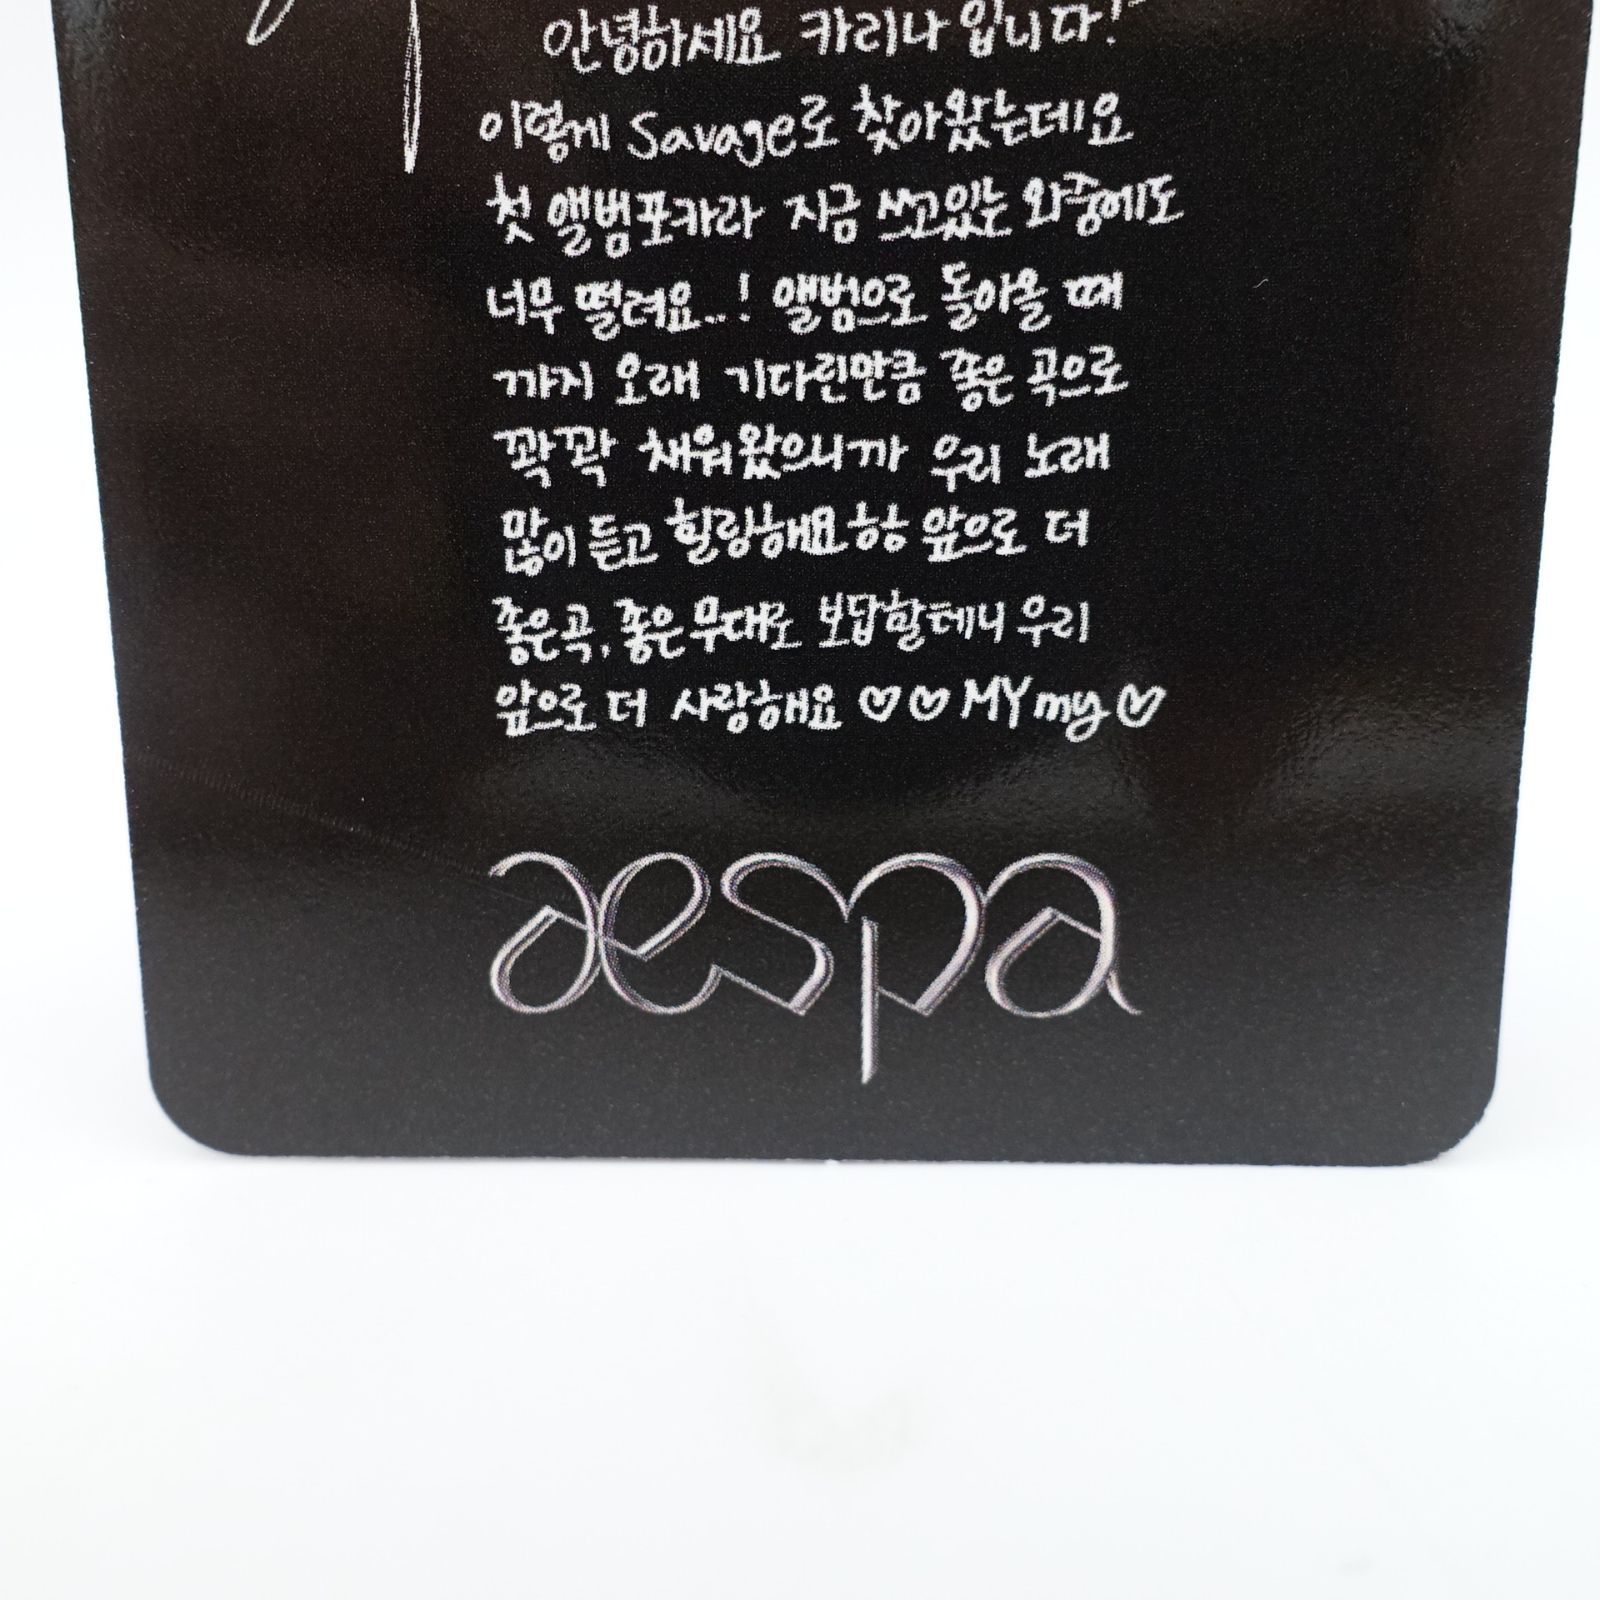 안녕하세요 카리나입니다!
이렇게 Savage로 찾아왔는데요
첫 앨범포카라 지금 쓰고있는 와중에도
너무 떨려요..! 앨범으로 돌아올 때
까지 오래 기다린만큼 좋은 곡으로
꽉꽉 채워왔으니까 우리 노래
많이 듣고 힐링해요 항항 앞으로 더
좋은곡, 좋은무대로 보답할테니 우리
앞으로 더 사랑해요 ♡♡ MY my ♡
aespa